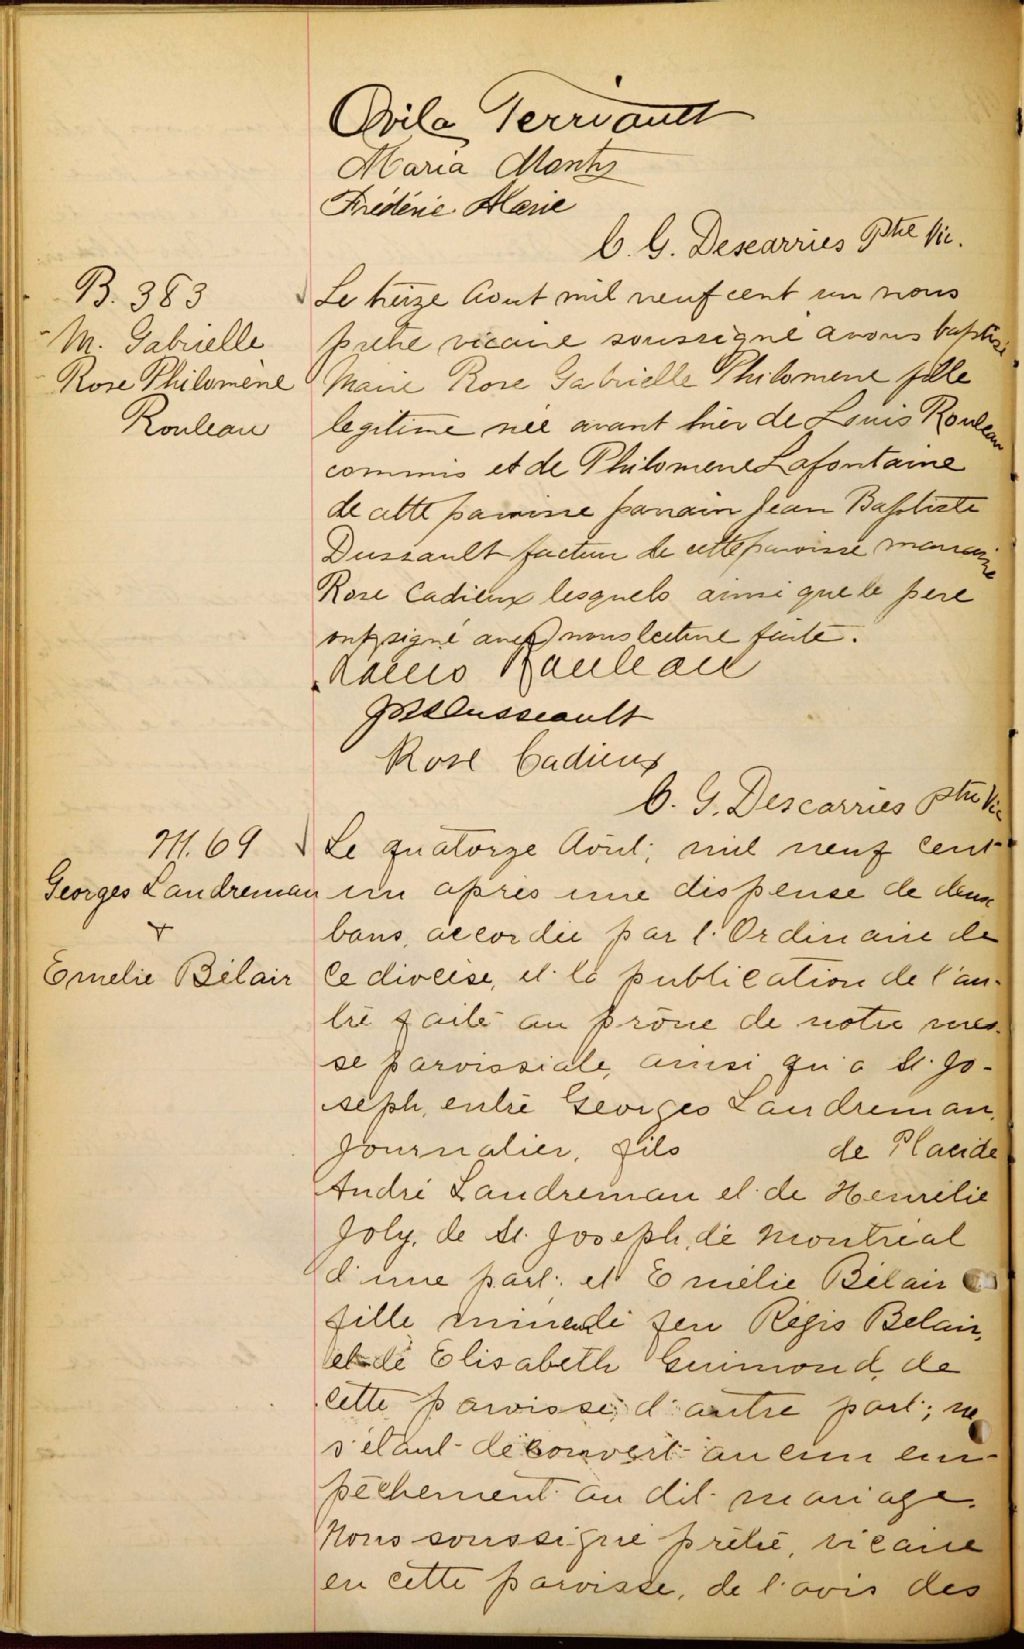 Ovila Terriault
Maria Mantz
Frédéric Marie
C. G. Descarries Ptre Vic.
B. 383
M. Gabrielle
Rose Philomène
Rouleau
Le treize Aout mil neuf cent un nous
prêtre vicaire soussigné avons baptisé
Marie Rose Gabrielle Philomene fille
legitime née avant hier de Louis Rouleau
commis et de Philomene Lafontaine
de cette paroisse parrain Jean Baptiste
Dussault facteur de cette paroisse marraine
Rose Cadieux lesquels ainsi que le pere
ont signé avec nous lecture faite.
Louis Rouleau
JBte Dusseault
Rose Cadieux
C. G. Descarries Ptre Vic
M. 69
Georges Landreman
+
Emelie Bélair
Le quatorze Août, mil neuf cent
un après une dispense de deux
bans, accordée par l'Ordinaire de
ce diocèse, et la publication de l'au-
tre faite au prône de notre mes-
se paroissiale, ainsi qu'a St. Jo-
seph, entre Georges Landreman,
journalier, fils de Placide
André Landreman et de Henrélie
Joly, de St. Joseph, de Montréal
d'une part; et Emélie Bélair
fille mineure de feu Régis Belair,
et de Elisabeth Guimond, de
cette paroisse, d'autre part; ne
s'étant découvert aucun em-
pêchement au dit mariage.
Nous soussigné prêtre, vicaire
en cette paroisse, de l'avis des